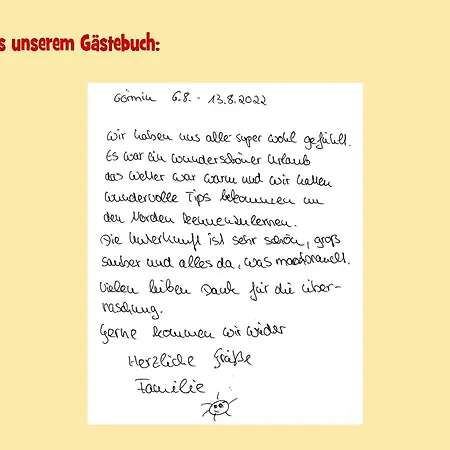 s unserem Gästebuch:
Görmin 6.8. - 13.8.2022
Wir haben uns alle super wohl gefühlt.
Es war ein wunderschöner Urlaub
das Wetter war warm und wir hatten
wundervolle Tips bekommen um
den Norden kennenzulernen.
Die Unterkunft ist sehr schön, groß
sauber und alles da, was man braucht.
Vielen lieben Dank für die Über-
raschung.
Gerne kommen wir wieder
Herzliche Grüße
Familie